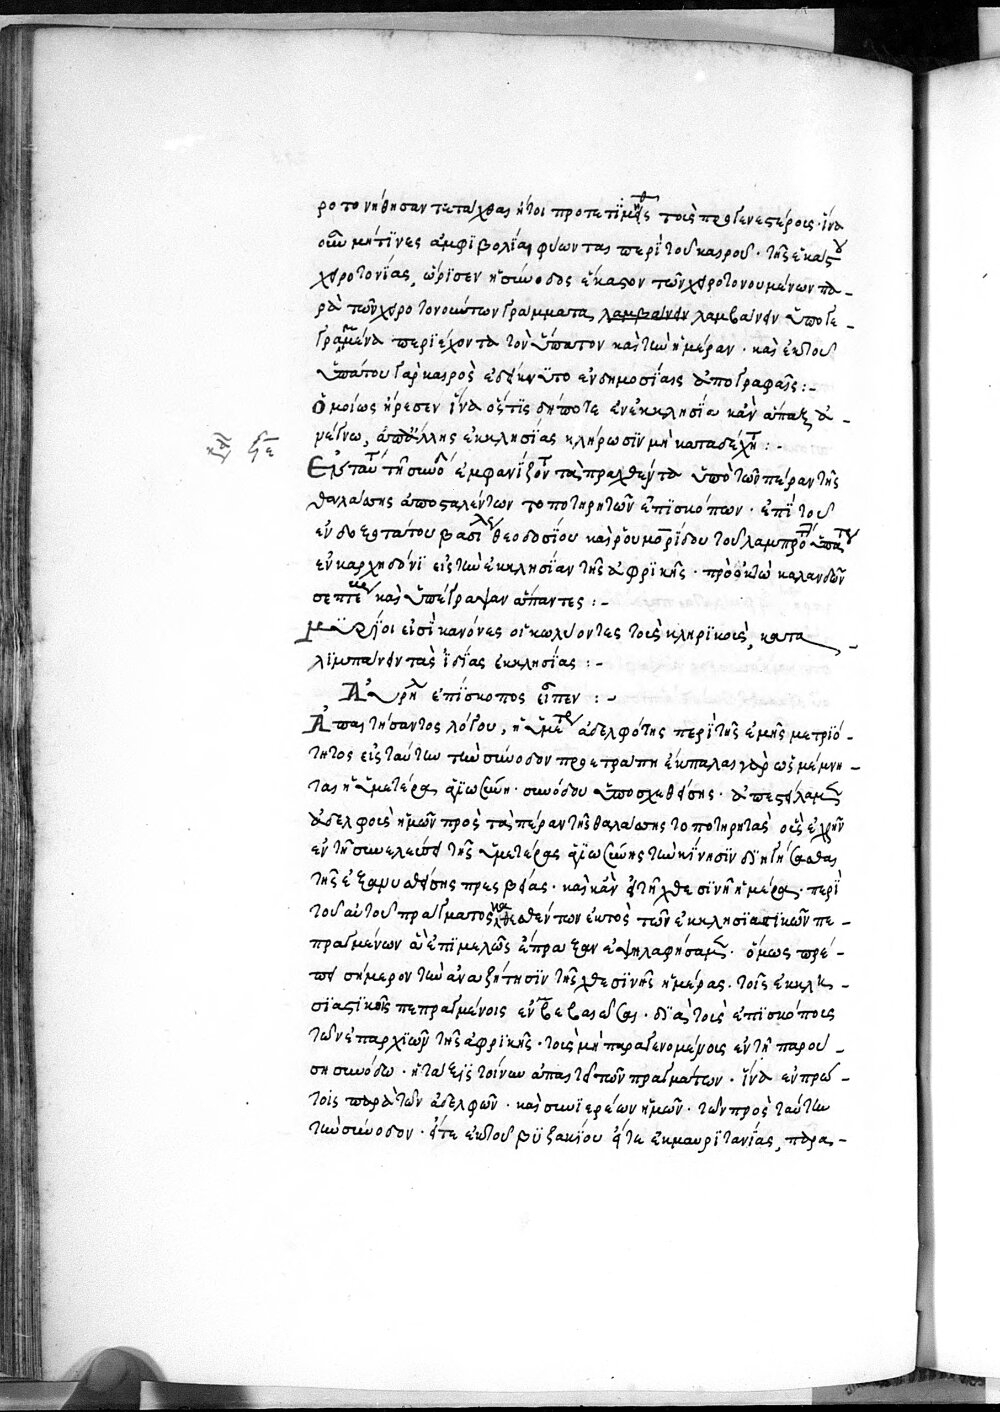 ροτονήθησαν τετάχθαι ἤτοι προτετιμῆσθ τοῖς προγενεστέροις· ἵνα
οὖν μή τϊνες ἀμφϊβολίαι φύωνται περὶ τοῦ καιροῦ· τῆς ἑκάστου
χειροτονίας, ὥρϊσεν ἡ σύνοδος ἕκαστον τῶν χειροτονουμένων πα -
ρὰ τῶν χειροτονούντων γράμματα, λαμβάνειν λαμβάνειν ὑπογε -
γραμμένα περϊέχοντα τὸν ὕπατον καὶ τὴν ἡμέραν· καὶ ἐκ τοῦ
ὑπάτου γὰρ καιρὸς ἐδείκνυτο ἐν δημοσίαις ἀπογραφαῖς : -
Ὁμοίως ἤρεσεν ἵνα ὅστϊς δήποτε ἐν ἐκκλησίᾳ κἂν ἅπαξ ἀ -
μείνω, ἀπὸ ἄλλης ἐκκλησίας κλήρωσϊν μὴ καταδέχητ : -
ἐν ταύτ τῇ συνόδ ἐμφανίζοντ τὰ πραχθέντα ὑπὸ τῶν πέραν τῆς
θαλάσσης ἀποσταλέντων τοποτηρητῶν ἐπϊσκόπων· ἐπὶ τοῦ
ἐνδοξοτάτου βασιλέ θεοδοσίου καὶ ῥουμορίδου τοῦ λαμπροτ ὑπάτου
ἐν καρχηδόνϊ εἰς τὴν ἐκκλησίαν τῆς ἀφρϊκῆς· πρὸ ὀκτὼ καλανδῶν
σεπτεμ καὶ ὑπέγραψαν ἅπαντες : -
μύρϊοι εἰσὶ κανόνες οἱ κωλύοντες τοὺς κληρϊκούς, κατα -
λϊμπάνειν τὰς ἰδίας ἐκκλησίας : -
Αὐρήλ ἐπίσκοπος εἶπεν : -
Ἀπαιτήσαντος λόγου, ἡ ὑμετέ ἀδελφότης περὶ τῆς ἐμῆς μετρϊό -
τητος εἰς ταύτην τὴν σύνοδον προετράπη ἔκπαλαι γὰρ ὡς μέμνη -
ται ἡ ὑμετέρα ἁγϊωσύνη· συνόδου ὑποσχεθείσης· ἀπεστείλαμεν
ἀδελφοὺς ἡμῶν πρὸς τὰ πέραν τῆς θαλάσσης τοποτηρητὰς οὓς ἐχρῆν
ἐν τῇ συνελεύσει τῆς ὑμετέρας ἁγϊωσύνης τὴν κίνησϊν δϊηγήσασθαι
τῆς ἐξανυσθείσης πρεσβείας· καὶ κἂν ἐν τῇ χθεσϊνῇ ἡμέρᾳ· περὶ
τοῦ αὐτοῦ πράγματος ἐκτὸς τῶν ἐκκλησϊαστϊκῶν πε -
πραγμένων ἃ ἐπϊμελῶς ἔπραξαν ἐψηλαφήσαμεν· ὅμως πρέ -
πει σήμερον τὴν ἀναζήτησϊν τῆς χθεσϊνῆς ἡμέρας· τοῖς ἐκκλη -
σϊαστϊκοῖς πεπραγμένοις ἐν βεβαιῶσαι· δϊὰ τοὺς ἐπϊσκόπους
τῶν ἐπαρχϊῶν τῆς ἀφρϊκῆς· τοὺς μὴ παραγενομένους ἐν τῇ παρού -
σῃ συνόδῳ· ἡ τάξϊς τοίνυν ἀπαιτεῖ τῶν πραγμάτων· ἵνα ἐν πρώ -
τοις παρὰ τῶν ἀδελφῶν· καὶ συνϊερέων ἡμῶν· τῶν πρὸς ταύτην
τὴν σύνοδον· εἴτε ἐκ τοῦ βϋζακίου εἴτε ἐκ μαυρϊτανίας, παρα -